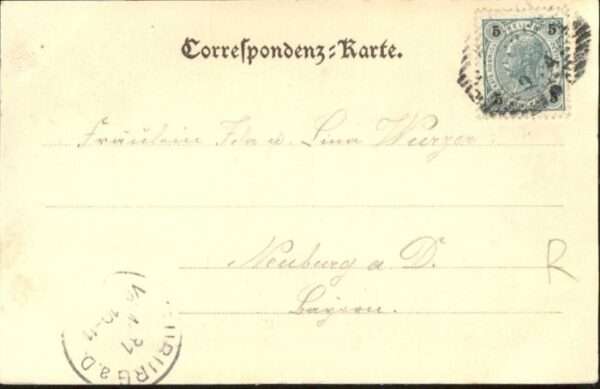 Correspondenz-Karte.
5 5
5 5
Fräulein Ida u. Lina Wurzer
Neuburg a D.
Bayern.
R
BURG a.D.
10-11